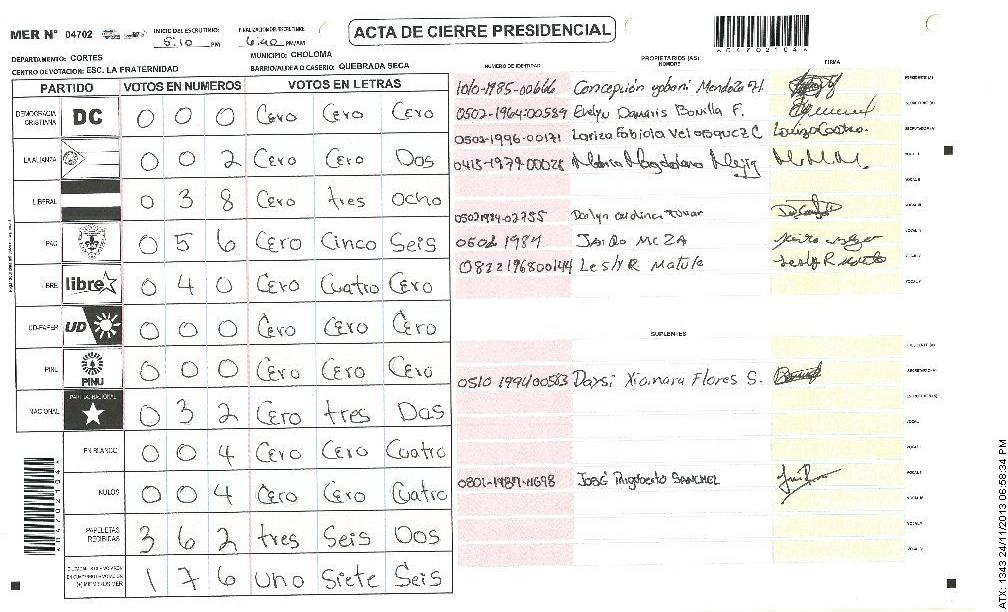 MER N° 04702
INICIO DEL ESCRUTINIO: 5:10 PM
FINALIZACION DEL ESCRUTINIO: 6:40 PM/AM
ACTA DE CIERRE PRESIDENCIAL
A04702104A
DEPARTAMENTO: CORTES
MUNICIPIO: CHOLOMA
CENTRO DE VOTACION: ESC. LA FRATERNIDAD
BARRIO/ALDEA O CASERIO: QUEBRADA SECA
PARTIDO VOTOS EN NUMEROS VOTOS EN LETRAS
DEMOCRACIA CRISTIANA DC 0 0 0 Cero Cero Cero
LA ALIANZA 0 0 2 Cero Cero Dos
LIBERAL 0 3 8 Cero tres ocho
PAC 0 5 6 Cero Cinco Seis
LIBRE libre 0 4 0 Cero Cuatro Cero
UD-FAPER UD 0 0 0 Cero Cero Cero
PINU PINU 0 0 0 Cero Cero Cero
NACIONAL PARTIDO NACIONAL 0 3 2 Cero tres Dos
EN BLANCO 0 0 4 Cero Cero Cuatro
NULOS 0 0 4 Cero Cero Cuatro
PAPELETAS RECIBIDAS 3 6 2 tres Seis Dos
1 7 6 uno Siete Seis
NUMERO DE IDENTIDAD PROPIETARIOS (AS) NOMBRE FIRMA
1010-1985-00666 Concepción Mendoza H.
0502-1964-00589 Evelyn Damaris Bonilla F.
0502-1996-00171 Lariza Fabiola Velasquez C
0413-1979-00028 Maria Magdalena Mejia
0502 1984-02755
0502 1984 JAIRO MEZA
0822196800144 Lesly R Matute
SUPLENTES
0510 199400583 Daysi Xiomara Flores S.
0801-1987-11698 JOSÉ Rigoberto SANCHEZ
A04702104A
ATX: 1343 24/11/2013 06:58:34 PM